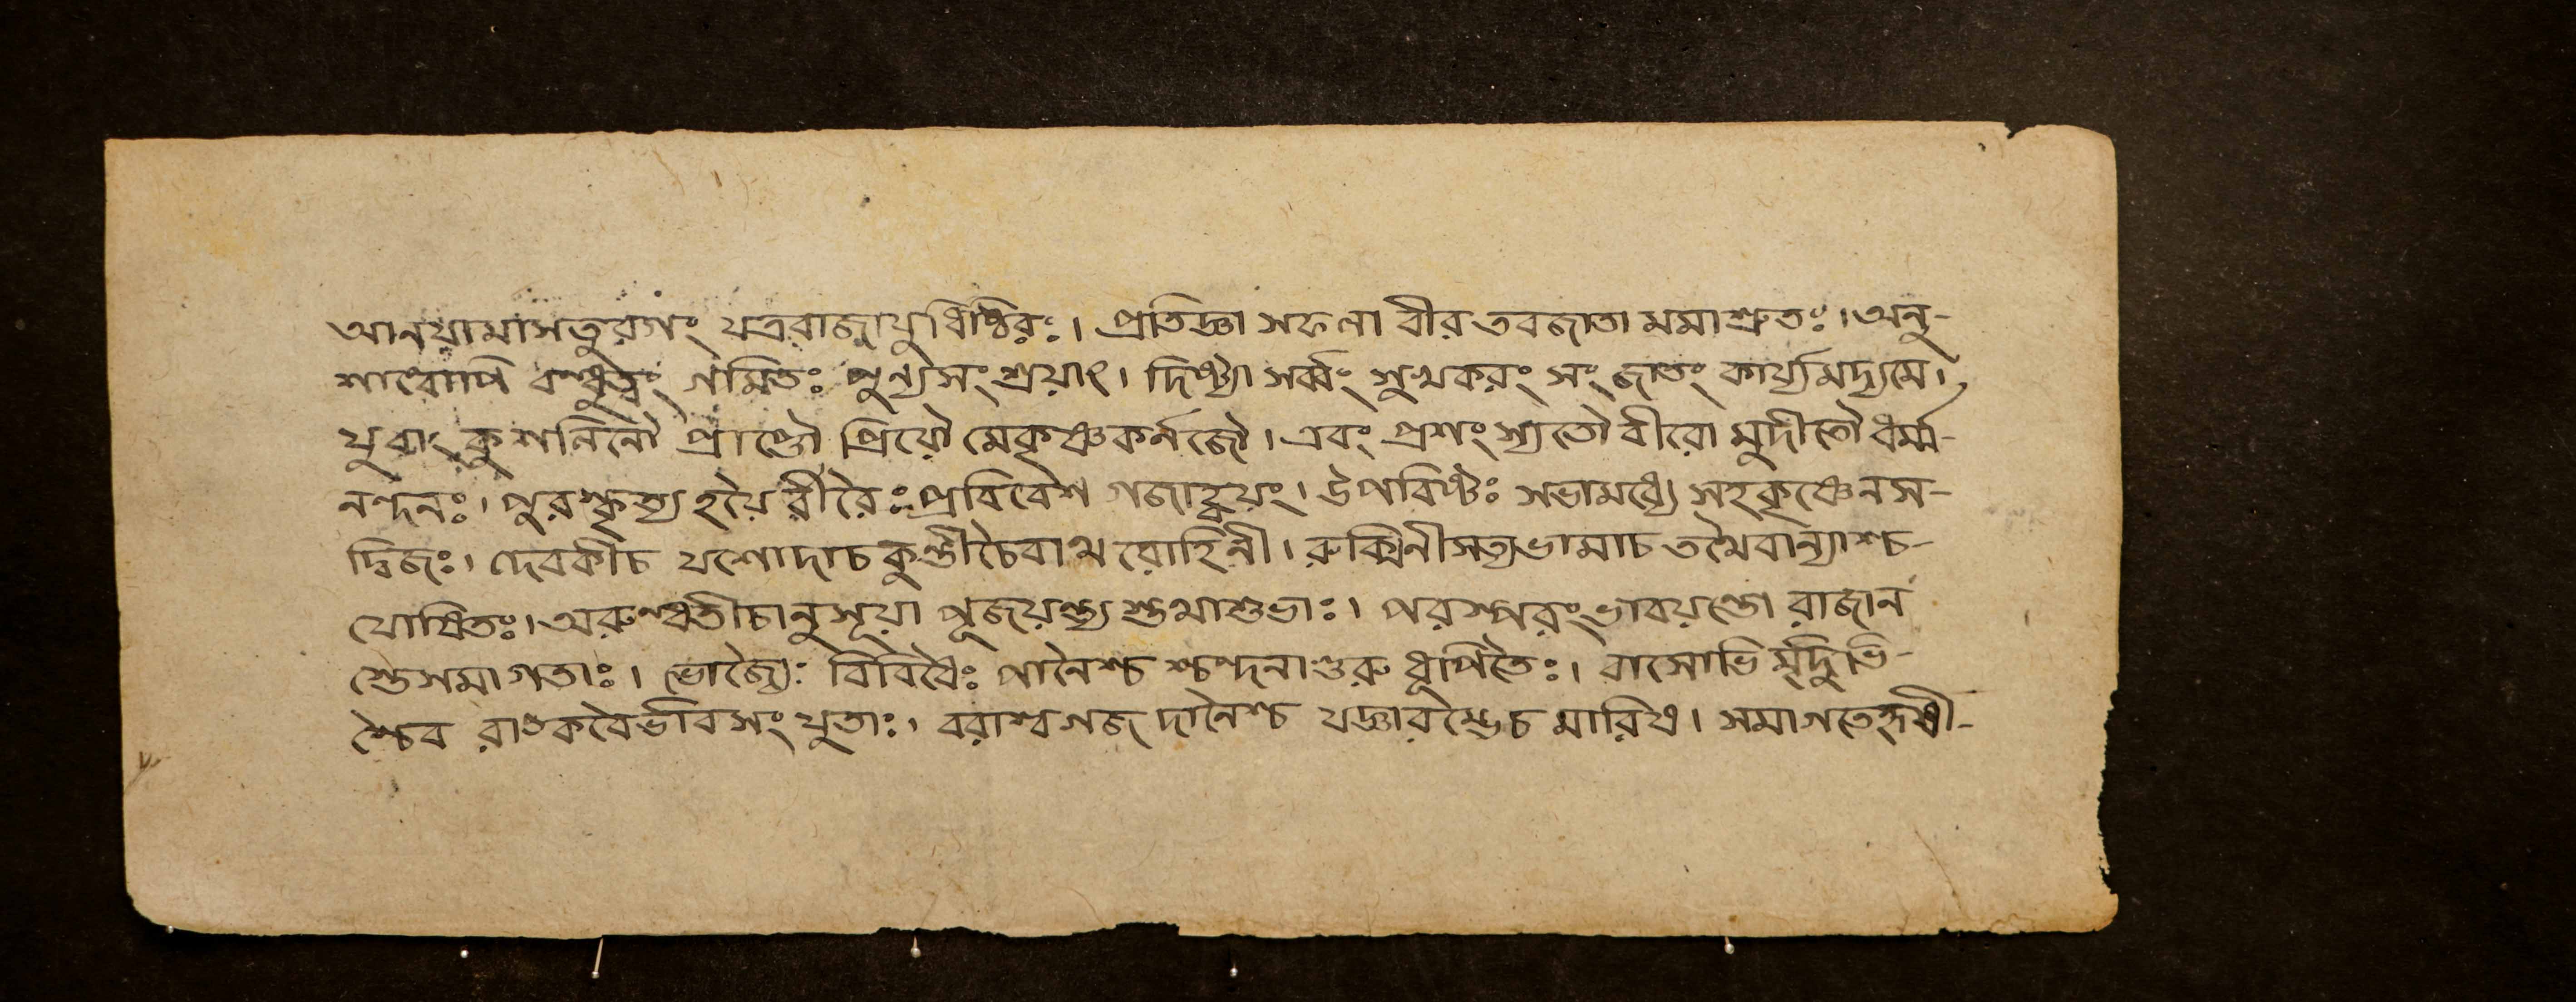 আনয়ামাসতুরগং যত্ররাজাযুধিষ্ঠিরঃ। প্রতিজ্ঞা সফলা বীর তবজাতা মমাশ্রুতঃ। অনু-
শাল্বোপি বন্ধুত্বং গমিতঃ পুন্যসংশ্রয়াৎ। দিষ্ট্যা সর্ব্বং সুখকরং সংজাতং কার্য্যমিদ্যমে।
যুবাং কুশলিনৌ প্রাপ্তৌ প্রিয়ৌ মেকৃষ্ণকর্নজৌ। এবং প্রশংস্যতৌ বীরো মুদীতৌ ধর্ম্ম-
নন্দনঃ। পুরস্কৃত্য হয়ৈ র্বীরৈঃ প্রবিবেশ গজাহ্বয়ং। উপবিষ্টঃ সভামধ্যে সহকৃষ্ণেনস-
দ্বিজঃ। দেবকীচ যশোদাচ কুন্তীচৈবাথ রোহিনী। রুক্মিনীসত্যভামাচ তথৈবান্যাশ্চ-
যোষিতঃ। অরুন্ধতীচানুসূয়া পূজয়ন্ত্য স্তথাশুভাঃ। পরস্পরংভাবয়ন্তো রাজান
স্তেসমাগতাঃ। ভোজ্যৈঃ বিবিধৈঃ পানৈশ্চ শ্চন্দনাগুরু ধূপিতৈঃ। বাসোভি র্মৃদুভি-
শ্চৈব রাঙ্কবৈর্ভাবসংযুতাঃ। বরাশ্বগজ দানৈশ্চ যজ্ঞারম্ভেচ মারিষ। সমাগতেহৃষী-